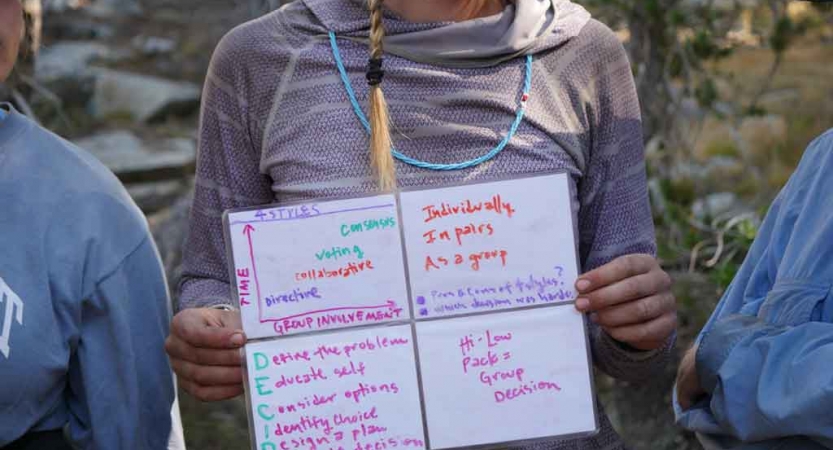 4 STYLES
Consensus
Voting
collaborative
Directive
TIME
GROUP INVOLVEMENT
Individually
In pairs
As a group
Pros & Cons of 4 styles?
which decision was harder
Define the problem
Educate self
Consider options
Identify choice
Design a plan
decision
Hi-Low
Pack =
Group
Decision
T